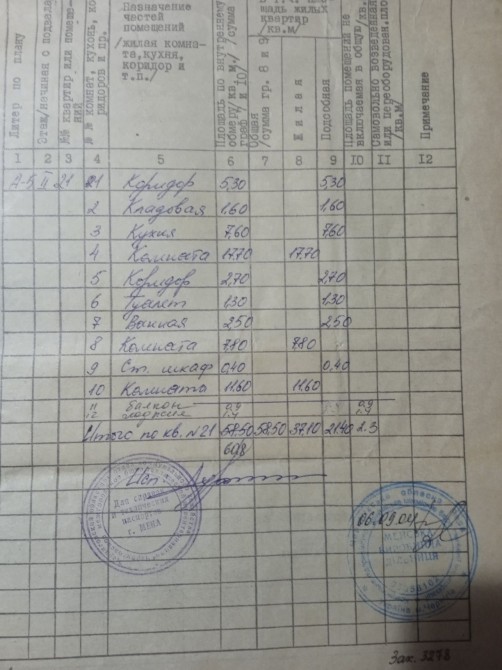 Литер по плану
Этаж/начиная с подвала
№№ квартир или помеще-
ний
№ № комнат, кухонь, ко-
ридоров и пр.
Назначение
частей
помещений
/жилая комна-
та, кухня,
коридор и
т.п./
Площадь по внутреннему
обмеру/кв. м./ /сумма
граф 7 и 10/
Общая
/сумма гр. 8 и 9/
щадь жилых
квартир
/кв.м/
Жилая
Подсобная
Площадь помещений не
включаемая в общую/кв.
Самовольно возведенная
или переоборудован. пло
/кв.м/
Примечание
1 2 3 4 5 6 7 8 9 10 11 12
А-5 II 21 1 Коридор 5,30 5,30
2 Кладовая 1,60 1,60
3 Кухня 7,60 7,60
4 Комната 17,70 17,70
5 Коридор 2,70 2,70
6 Туалет 1,30 1,30
7 Ванная 2,50 2,50
8 Комната 7,80 7,80
9 Ст. шкаф 0,40 0,40
10 Комната 11,60 11,60
11 балкон 0,9 0,9
12 лоджия 1,4 1,4
Итого по кв. №21 58,50 58,50 37,10 21,40 2.3
60,8
Для справок
и технических
паспортов
г. МЕНА
06.09.04р
Зак. 3278